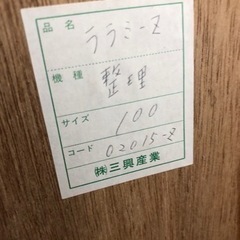 品名 ララミーZ
機種 整理
サイズ 100
コード 02015-Z
㈱三興産業